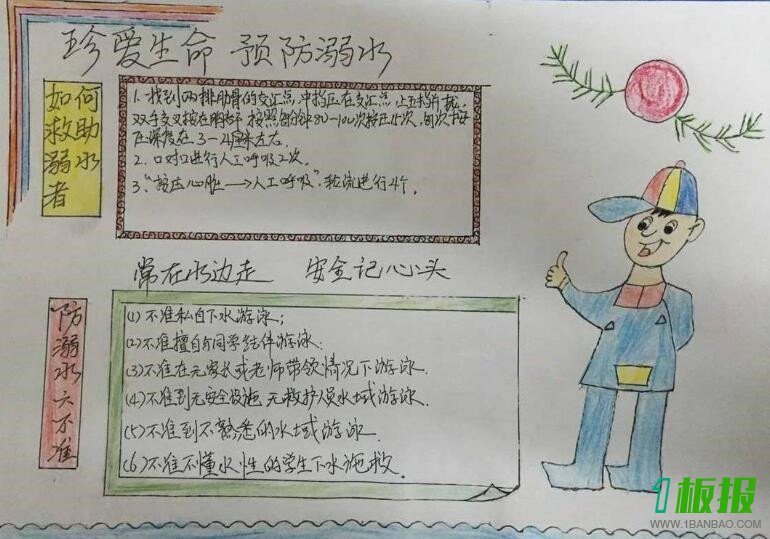 珍爱生命 预防溺水
如何救助溺水者
1. 找到两排肋骨的交汇点,中指压在交汇点上五指并拢,
双手交叉按在胸部,按照每分钟80-100次按压15次,每次按
压深度在3-4厘米左右.
2. 口对口进行人工呼吸2次.
3."按压心脏→人工呼吸",轮流进行4个.
常在水边走 安全记心头
防溺水六不准
(1)不准私自下水游泳;
(2)不准擅自与同学结伴游泳.
(3)不准在无家长或老师带领情况下游泳.
(4)不准到无安全设施、无救护人员水域游泳.
(5)不准到不熟悉的水域游泳.
(6)不准不懂水性的学生下水施救.
1板报
WWW.1BANBAO.COM